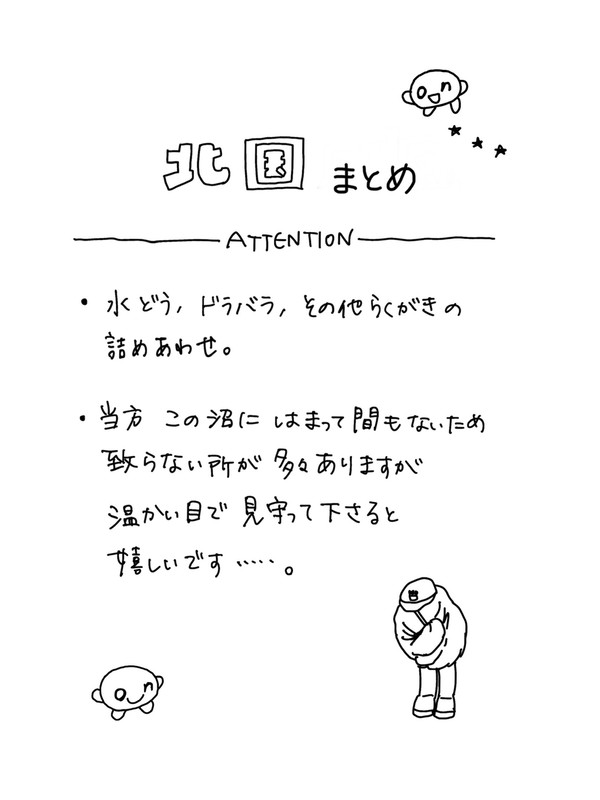 北国 まとめ
ATTENTION
・水どう，ドラバラ，その他らくがきの
詰めあわせ。
・当方 この沼に はまって間もないため
致らない所が 多々ありますが
温かい目で 見守って下さると
嬉しいです……。